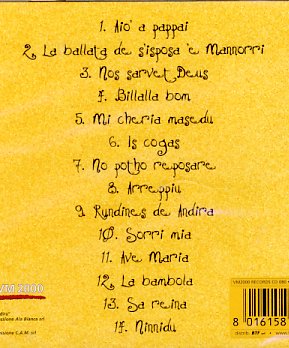 1. Aio' a pappai
2. La ballata de s'isposa 'e Mannorri
3. Nos sarvet Deus
4. Billalla bom
5. Mi cheria masedu
6. Is cogas
7. No potho reposare
8. Arreppiu
9. Rundines de Andira
10. Sorri mia
11. Ave Maria
12. La bambola
13. Sa reina
14. Ninnidu
VM 2000
VM2000 RECORDS CD 080
8 016158
distrib. BTF